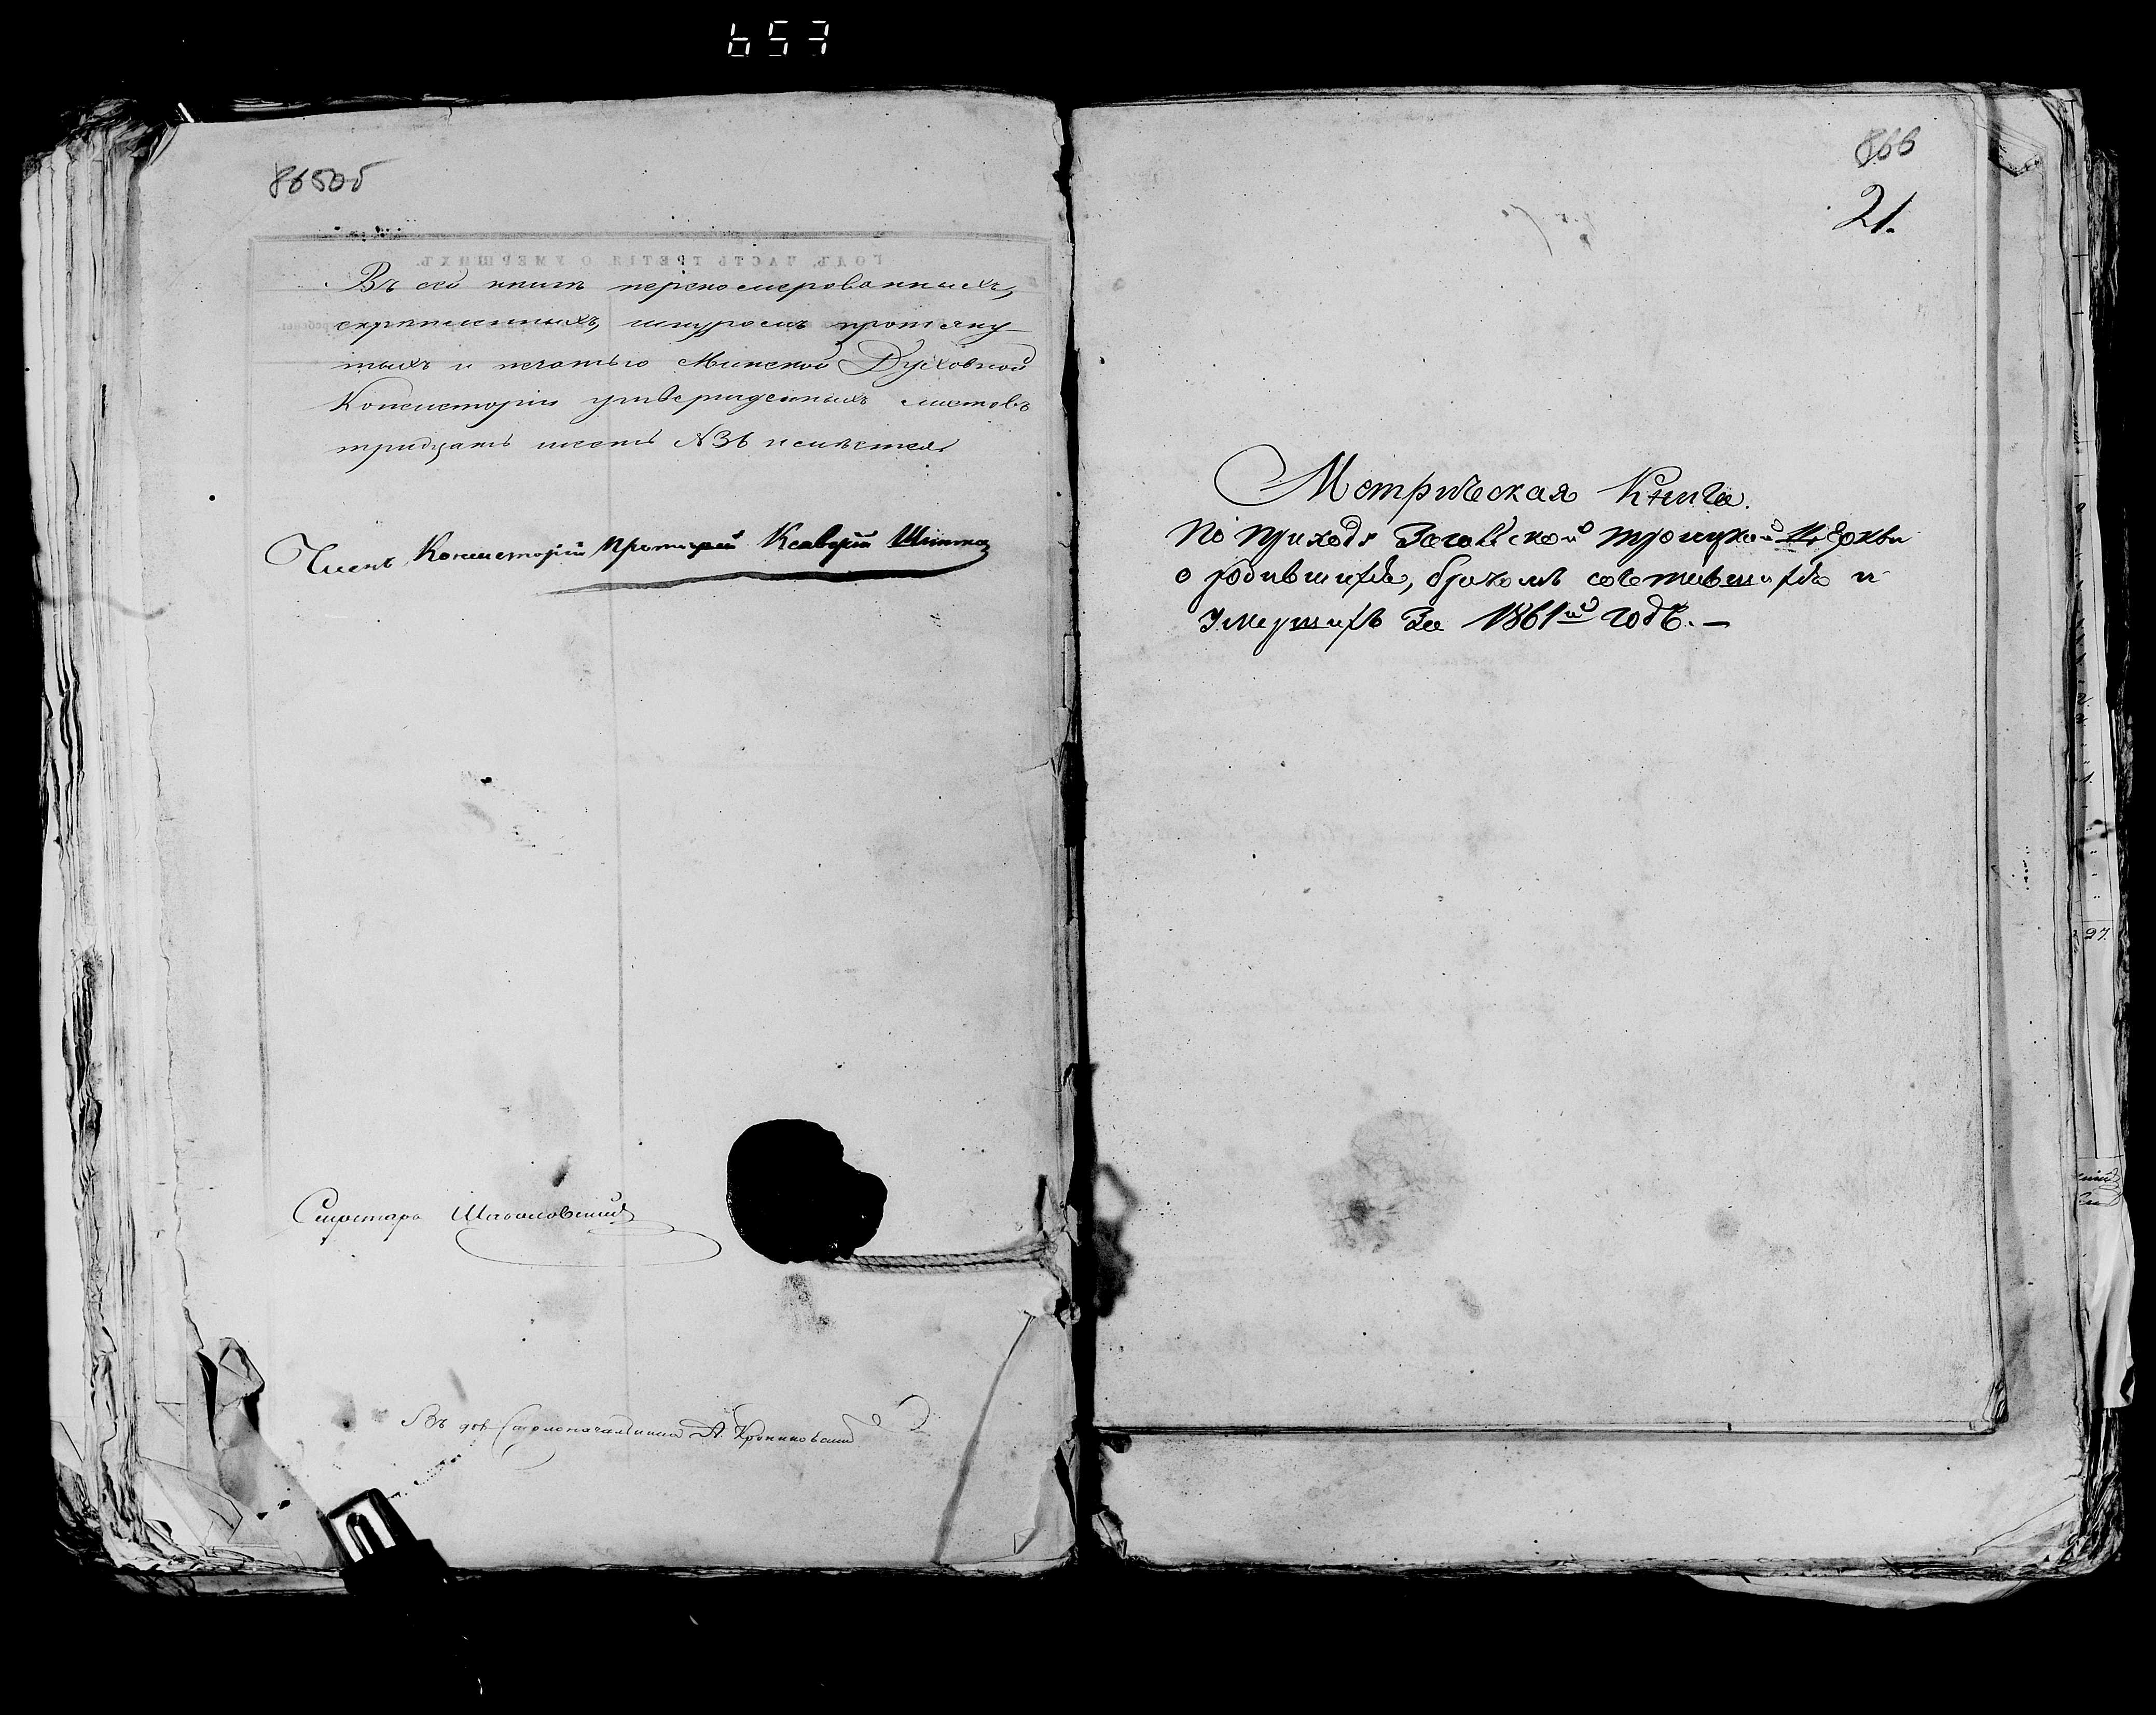 657
865об
Въ сей книгѣ перенумерованныхъ,
скрѣпленныхъ, шнуромъ протяну
тыхъ и печатью Минской Духовной
Консисторіи утвержденныхъ листовъ
тридцать шесть №36 имѣется
Членъ Консисторіи Протоіерей Ксаверій
Секретарь
Въ дол. Столоначальника А.
866
21.
Метрическая Книга.
По приходу Троицкой Церкви
о родившихся, бракомъ сочетавшихся и
умершихъ За 1861й годъ. —
27.